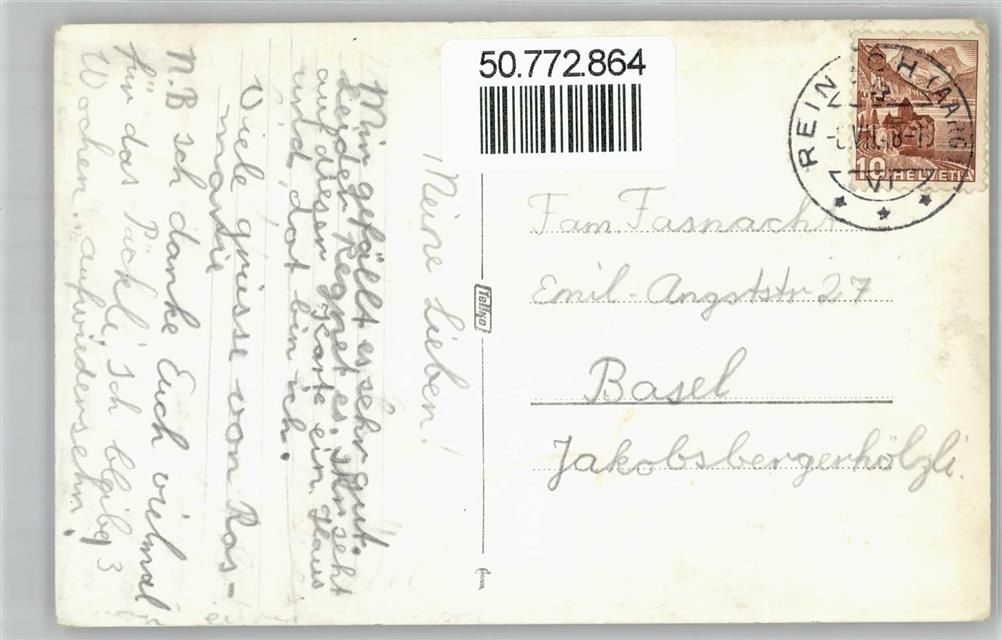 50.772.864
REINACH (AARG
10
HELVETIA
VI
Tellko
Meine Lieben!
Mir gefällt es sehr gut.
Leider Regnet es. Ihr seht
auf dieser Karte ein Haus
und dort bin ich.
Viele grüsse von Ros-
marie
N.B Ich danke Euch vielmal
für das Päckli. Ich bleibe 3
Wochen. aufwiedersehn
Fam. Fasnacht
Emil-Angststr 27
Basel
Jakobsbergerhölzli.